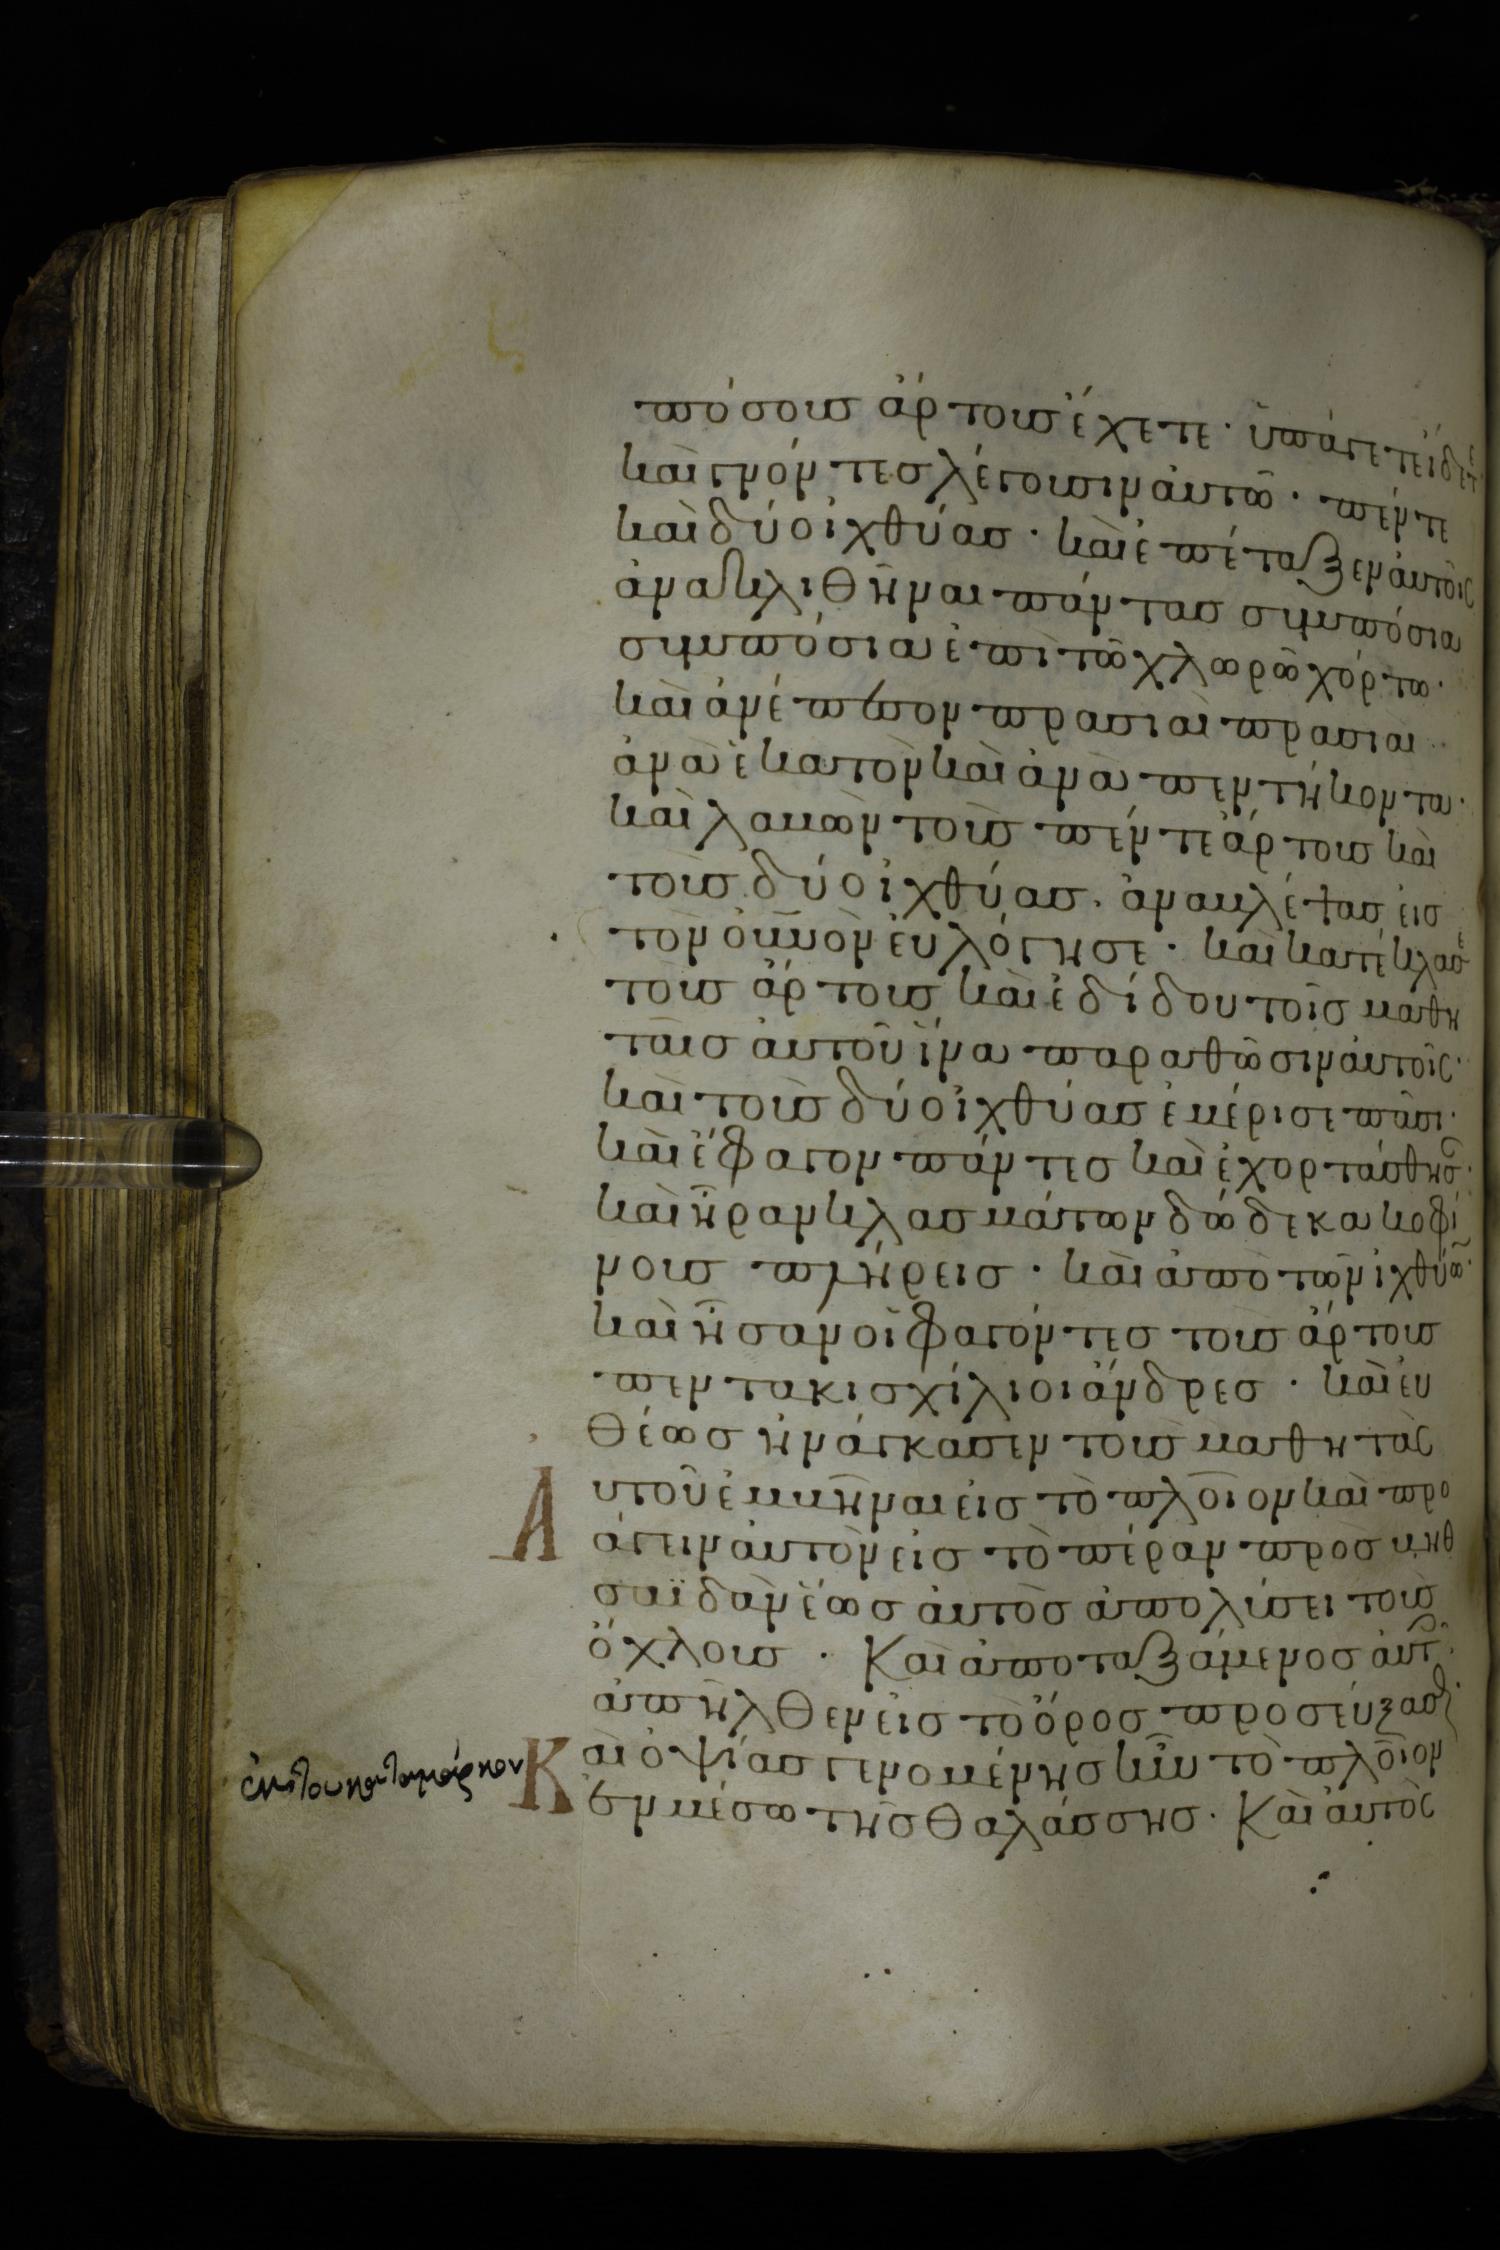 πόσους ἄρτους ἔχετε· ὑπάγετε ἴδετε
καὶ γνόντες λέγουσιν αὐτῶ· πέντε
καὶ δύο ἰχθύας· καὶ ἐπέταξεν αὐτοῖς
ἀνακλιθῆναι πάντας συμπόσια
συμπόσια ἐπὶ τῶ χλωρῶ χόρτω·
καὶ ἀνέπεσον πρασιαὶ πρασιαὶ
ἀνὰ ἑκατὸν καὶ ἀνὰ πεντήκοντα·
καὶ λαβὼν τοὺς πέντε ἄρτους καὶ
τοὺς δύο ἰχθύας· ἀναβλέψας εἰς
τὸν οὐνὸν εὐλόγησε· καὶ κατέκλασε
τοὺς ἄρτους καὶ ἐδίδου τοῖς μαθη
ταῖς αὐτοῦ ἵνα παραθῶσιν αὐτοῖς·
καὶ τοὺς δύο ἰχθύας ἐμέρισε πᾶσι·
καὶ ἔφαγον πάντες καὶ ἐχορτάσθησ·
καὶ ἦραν κλασμάτων δώδεκα κοφί
νους πλήρεις· καὶ ἀπὸ τῶν ἰχθύω·
καὶ ἦσαν οἱ φαγόντες τοὺς ἄρτους
πεντακισχίλιοι ἄνδρες· καὶ εὐ
θέως ἠνάγκασεν τοὺς μαθητὰς
Αὐτοῦ ἐμβῆναι εἰς τὸ πλοῖον καὶ προ
άγειν αὐτὸν εἰς τὸ πέραν πρὸς βηθ
σαϊδὰν ἕως αὐτὸς ἀπολύσει τοὺς
ὄχλους· Καὶ ἀποταξάμενος αὐτ·
ἀπῆλθεν εἰς τὸ ὄρος προσεύξασθ
Καὶ ὀψίας γενομένης ἦν τὸ πλοῖον
ἐν μέσω τῆς θαλάσσης· Καὶ αὐτὸς
ἐκ τοῦ κατα μάρκον